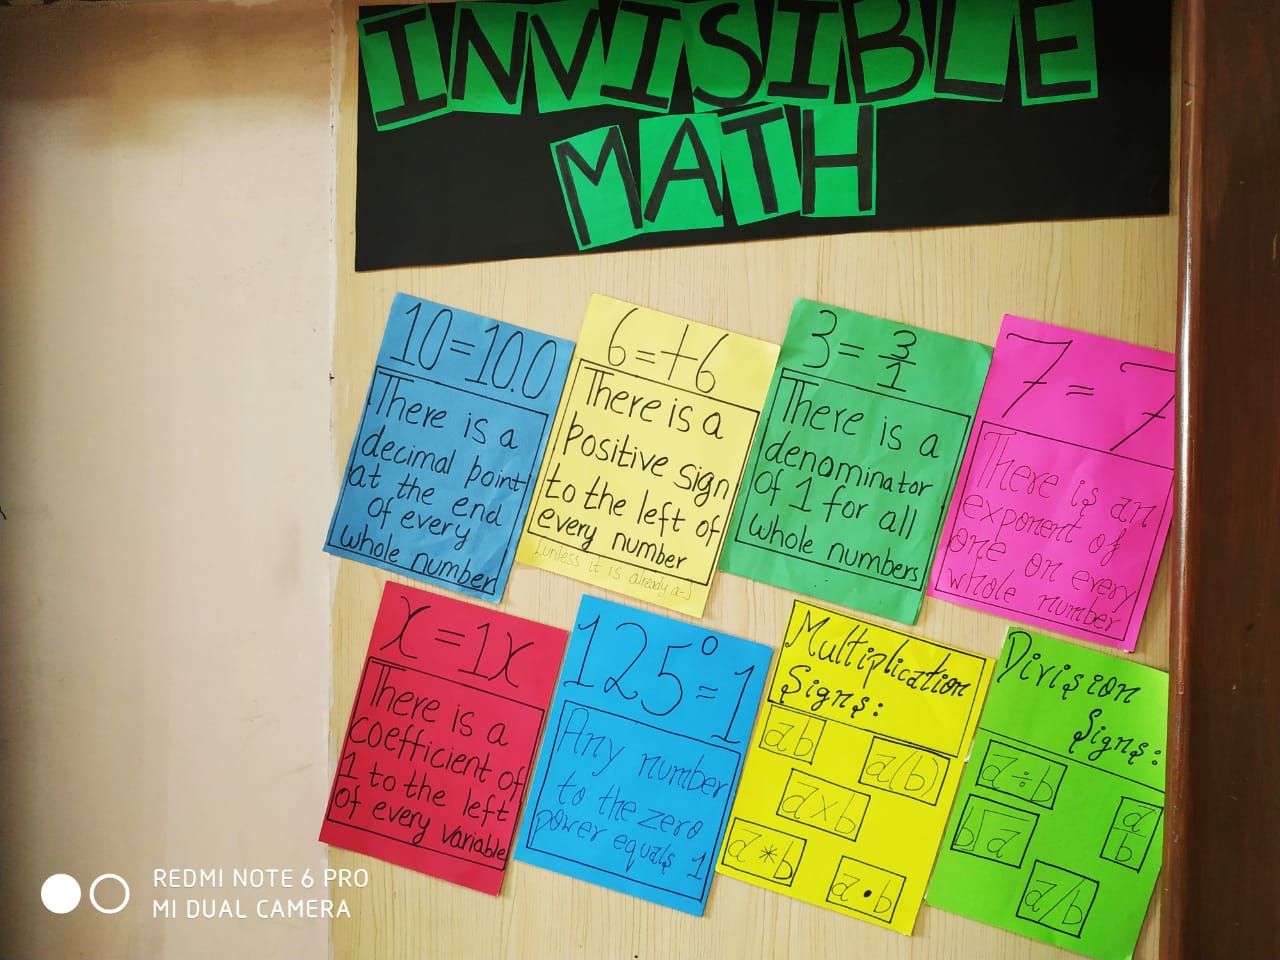 INVISIBLE
MATH
10=10.0
There is a
decimal point
at the end
of every
whole number
6=+6
There is a
positive sign
to the left of
every number
(unless it is already a-)
3 = 3/1
There is a
denominator
of 1 for all
whole numbers
7 = 7
There is an
exponent of
one on every
whole number
x=1x
There is a
coefficient of
1 to the left
of every variable
125⁰=1
Any number
to the zero
power equals 1
Multiplication
Signs:
ab
a(b)
axb
a*b
a•b
Division
Signs:
a÷b
b⟌a
a
b
a/b
REDMI NOTE 6 PRO
MI DUAL CAMERA